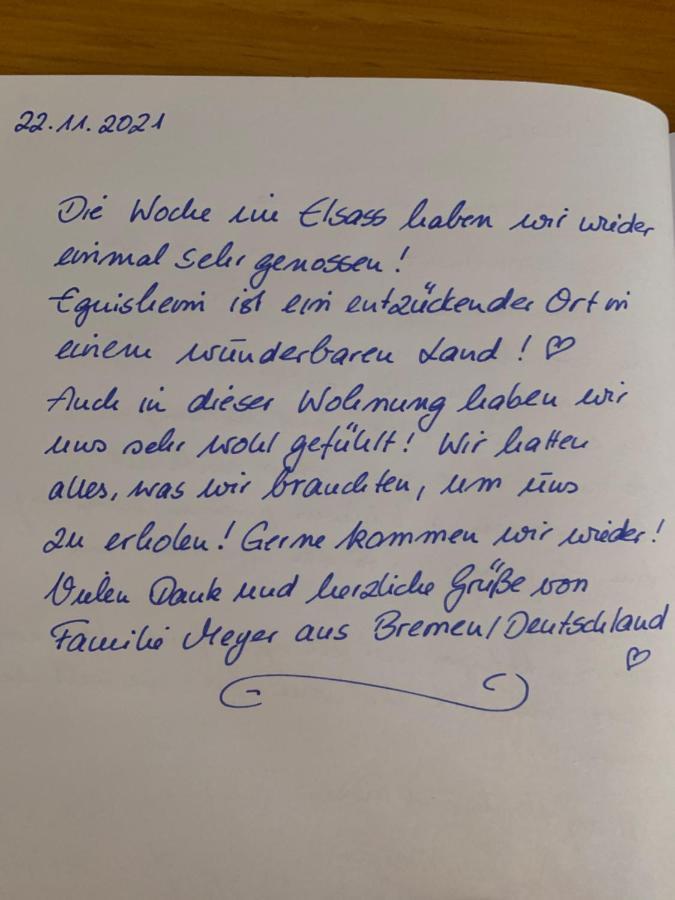 22.11.2021
Die Woche im Elsass haben wir wieder
einmal sehr genossen!
Eguisheim ist ein entzückender Ort in
einem wunderbaren Land! ♡
Auch in dieser Wohnung haben wir
uns sehr wohl gefühlt! Wir hatten
alles, was wir brauchten, um uns
zu erholen! Gerne kommen wir wieder!
Vielen Dank und herzliche Grüße von
Familie Meyer aus Bremen/Deutschland
♡